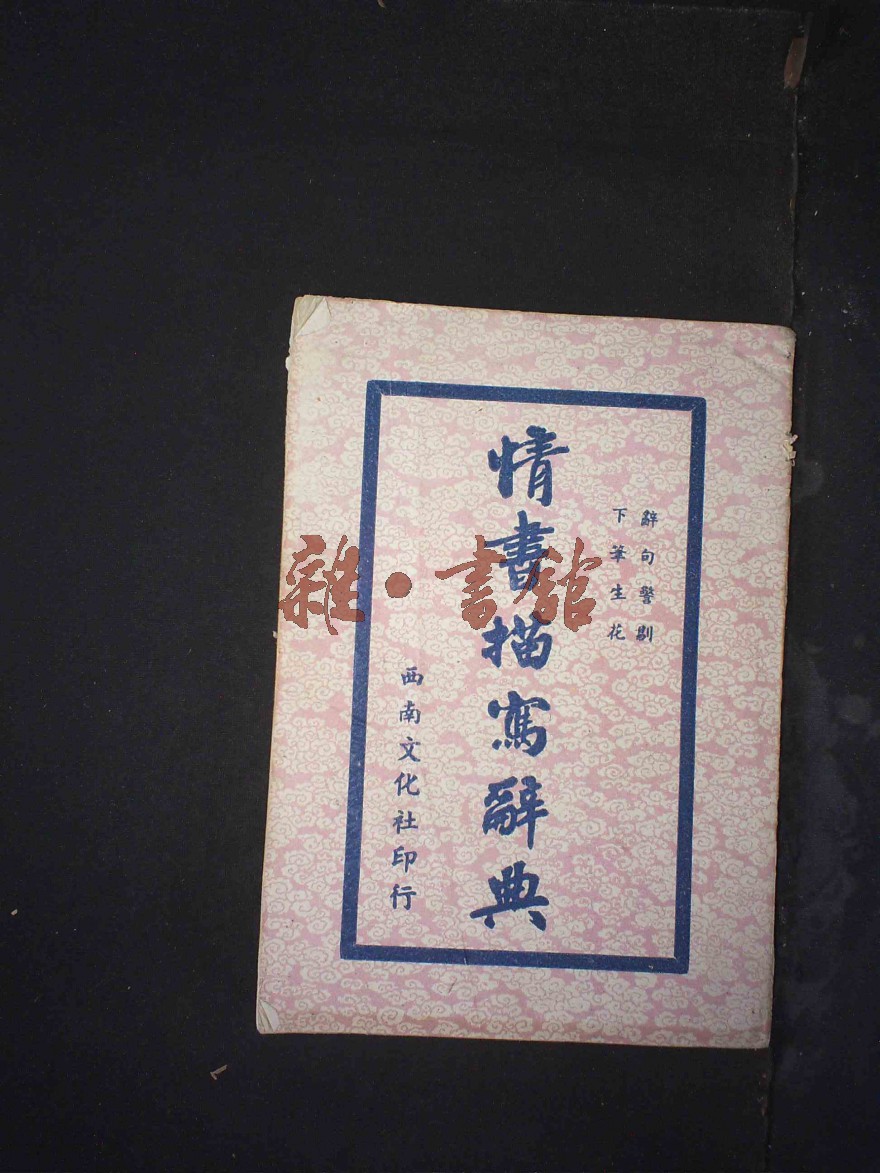 辭句警剔
下筆生花
情書描寫辭典
西南文化社印行
雜·書館